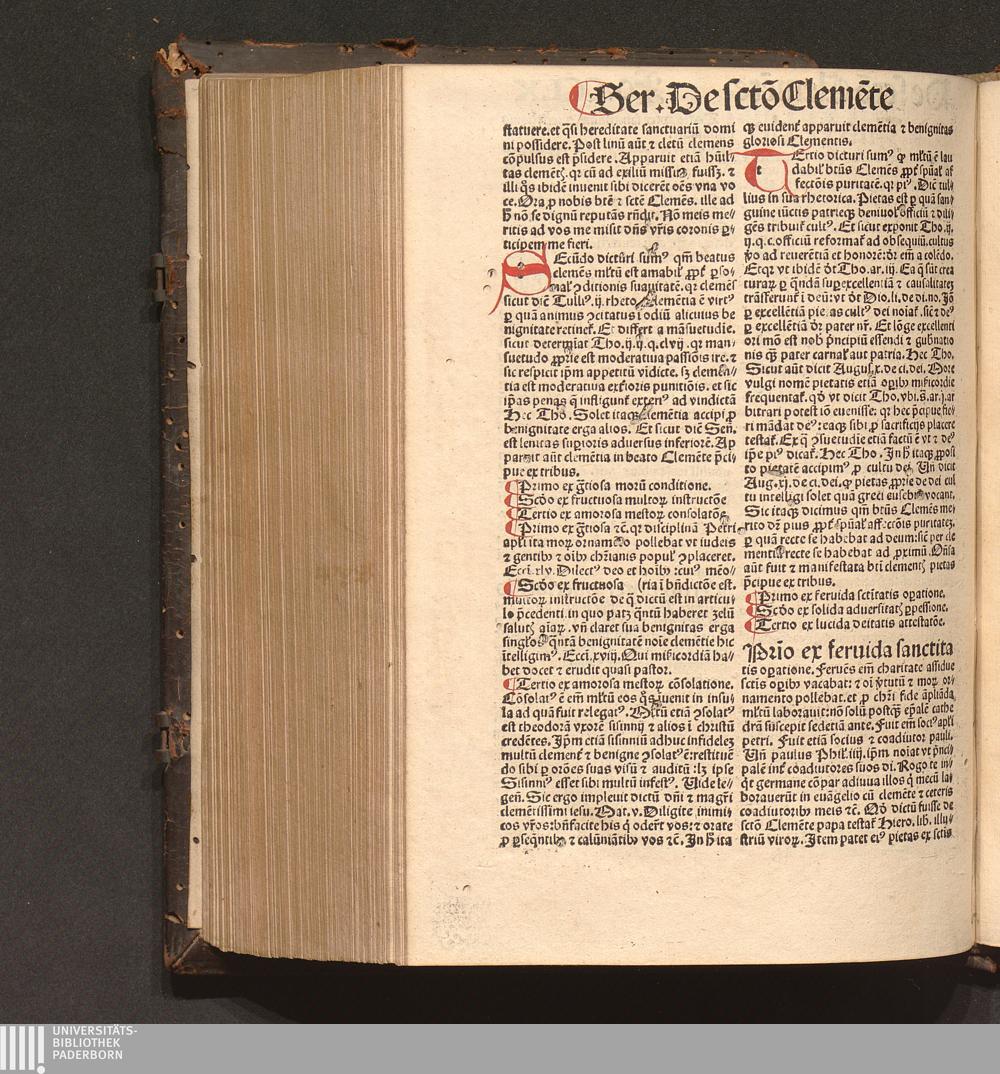 Ser. De sctō Clemēte
statuere. et q̄si hereditate sanctuariū domi
ni possidere. Post linū aūt ⁊ cletū clemens
cōpulsus est p̄sidere. Apparuit etiā hūili
tas clemēt. qꝛ cū ad exiliū missus fuisset. ⁊
illi q̄s ibidē inuenit sibi dicerēt oēs vna vo
ce. Ora ꝓ nobis btē ⁊ sctē Clemēs. ille ad
h̄ nō se dignū reputās rn̄dit. Nō meis me/
ritis ad vos me misit dn̄s vr̄is coronis ꝑ/
ticipem me fieri.
SEcūdo dictūri sumꝰ qm̄ beatus
clemēs mĺtū est amabiĺ ꝓpt̄ ꝑso/
naĺ ꝯditionis suauitatē. qꝛ clemēs
sicut diē Tulliꝰ. ij. rheto. Clemētia ē virtꝰ
ꝑ quā animus ꝯcitatus ī odiū alicuius be
nignitate retinet̄. Et differt a māsuetudie.
sicut determīat Tho. ij. ij. q. clvij. qꝛ man/
suetudo ꝓprie est moderatiua passiōis ire. ⁊
sic respicit ip̄m appetitū vīdicte. sꝫ clemēn/
tia est moderatiua exterioris punitiōis. et sic
ip̄as penas q̄ infligunt̄ exteriꝰ ad vindictā
Hec Tho. Solet itaqꝫ clemētia accipi ꝓ
benignitate erga alios. Et sicut diē Señ.
est lenitas suꝑioris aduersus inferiorē. Ap
paruit aūt clemētia in beato Clemēte p̄ci
pue ex tribus.
Primo ex gr̄tiosa morū conditione.
Scd̄o ex fructuosa multoꝝ instructōe
Tertio ex amorosa mestoꝝ consolatōe.
Primo ex gr̄tiosa ⁊c̄. qꝛ disciplinā Petri
apl̄i ita moꝝ ornamēto pollebat vt iudeis
⁊ gentibꝰ ⁊ oībꝰ chr̄ianis populꝰ ꝯplaceret.
Eccī. xlv. Dilectꝰ deo et hoībꝰ :cuiꝰ mēo/
Scd̄o ex fructuosa (ria ī bn̄dictōe est.
multoꝝ instructōe de q̄ dictū est in articu/
lo p̄cedenti. in quo patꝫ q̄ntū haberet ʒelū
salutꝭ aīaꝝ. vn̄ claret sua benignitas erga
singĺos. q̄ntā benignitatē noīe clemētie hic
ītelligimꝰ. Eccī. xviij. Qui mīsericordiā ha/
bet docet ⁊ erudit quasi pastor.
Tertio ex amorosa mestoꝝ cōsolatione.
Cōsolatꝰ ē em̄ mĺtū eos q̄s īuenit in insu/
la ad quā fuit relegatꝰ. Mĺtū etiā ꝯsolatꝰ
est theodorā vxorē sisinnij ⁊ alios ī christū
credētes. Ip̄m etiā sisinniū adhuc infidelez
multū clement̄ ⁊ benigne ꝯsolatꝰ ē: restituē
do sibi ꝑ orōes suas visū ⁊ auditū :lꝫ ipse
Sisinniꝰ esset sibi multū infestꝰ. Uide le/
gen̄. Sic ergo impleuit dictū dn̄i ⁊ magr̄i
clemētissimi iesu. Mat. v. Diligite inimi
cos vr̄os: bn̄facite his q̄ oder̄t vos: ⁊ orate
ꝓ ꝑseq̄ntibꝰ ⁊ calūniātibꝰ vos ⁊c̄. In h̄ ita
qꝫ euident̄ apparuit clemētia ⁊ benignitas
gloriosi Clementis.
TErtio dicturi sumꝰ ꝙ mĺtū ē lau
dabiĺ btūs Clemēs ꝓpt̄ spūaĺ af
fectōis puritatē. qꝛ piꝰ. Diē tul/
lius in sua rhetorica. Pietas est ꝑ quā san/
guine iūctis patrieqꝫ beniuoĺ officiū ⁊ dili/
gēs tribuit̄ cultꝰ. Et sicut exponit Tho. ij.
ij. q. c. officiū reformat̄ ad obsequiū. cultus
v̄o ad reuerētiā et honorē: dr̄ em̄ a colēdo.
Etqꝫ vt ibidē dt̄ Tho. ar. iij. Ea q̄ sūt crea
turaꝝ ꝑ q̄ndā suꝑexcellentiā ⁊ causalitatez
trāsferunt̄ ī deū: vt dt̄ Dio. li. de di. no. Iō
ꝑ excellētiā pietas cultꝰ dei noīat̄. sic̄ ⁊ deꝰ
ꝑ excellētiā dr̄ pater nr̄. Et lōge excellenti
ori mō est nob̄ p̄ncipiū essendi ⁊ gubn̄atio
nis qꝫ pater carnaĺ aut patria. Hec Tho.
Sicut aūt dicit Augusꝰ. x. de ci. dei. More
vulgi nomē pietatis etiā oꝑibꝰ mīsericordie
frequentat̄. qd̓ vt dicit Tho. vbi. s̄. ar. j. ar
bitrari potest iō euenisse: qꝛ hec p̄cipue fie/
ri mādat deꝰ: eaqꝫ sibi ꝓ sacrificijs placere
testat̄. Ex q̄ ꝯsuetudie etiā factū ē vt ⁊ deꝰ
ip̄e piꝰ dicat̄. Hec Tho. In h̄ itaqꝫ ꝓposi
to pietatē accipimꝰ ꝓ cultu dei. Un̄ dicit
Aug. xj. de ci. dei. ꝙ pietas ꝓprie de dei cul
tu intelligi solet quā greci eusebiā vocant.
Sic itaqꝫ dicimus qm̄ btūs Clemēs me/
rito dr̄ pius ꝓpt̄ spūaĺ affectōis puritatez.
ꝑ quā recte se habebat ad deum: sic̄ per cle
mentiā recte se habebat ad ꝓximū. Om̄sa
aūt fuit ⁊ manifestata bti clementꝭ pietas
p̄cipue ex tribus.
Primo ex feruida sctītatis oꝑatione.
Scd̄o ex solida aduersitatꝭ ꝑpessione.
Tertio ex lucida deitatis attestatōe.
Prīo ex feruida sanctita
tis oꝑatione. Feruēs em̄ charitate assidue
sctīs oꝑibꝰ vacabat: ⁊ oī v̓tutū ⁊ moꝝ or/
namento pollebat. et ꝓ chr̄i fide āplianda
mĺtū laborauit: nō solū postqꝫ ep̄alē cathe
drā suscepit sed etiā ante. Fuit em̄ sociꝰ apl̄i
petri. Fuit etiā socius ⁊ coadiutor pauli.
Un̄ paulus Phil. iiij. ip̄m noīat vt p̄nci/
palē int̄ coadiutores suos di. Rogo te in/
q̄t germane cōpar adiuua illos q̄ mecū la/
borauerūt in euāgelio cū clemēte ⁊ ceteris
coadiutoribꝰ meis ⁊c̄. Qd̓ dictū fuisse de
sctō Clemēte papa testat̄ Hiero. lib. illu/
striū viroꝝ. Item patet eiꝰ pietas ex sctīs
UNIVERSITÄTS-
BIBLIOTHEK
PADERBORN